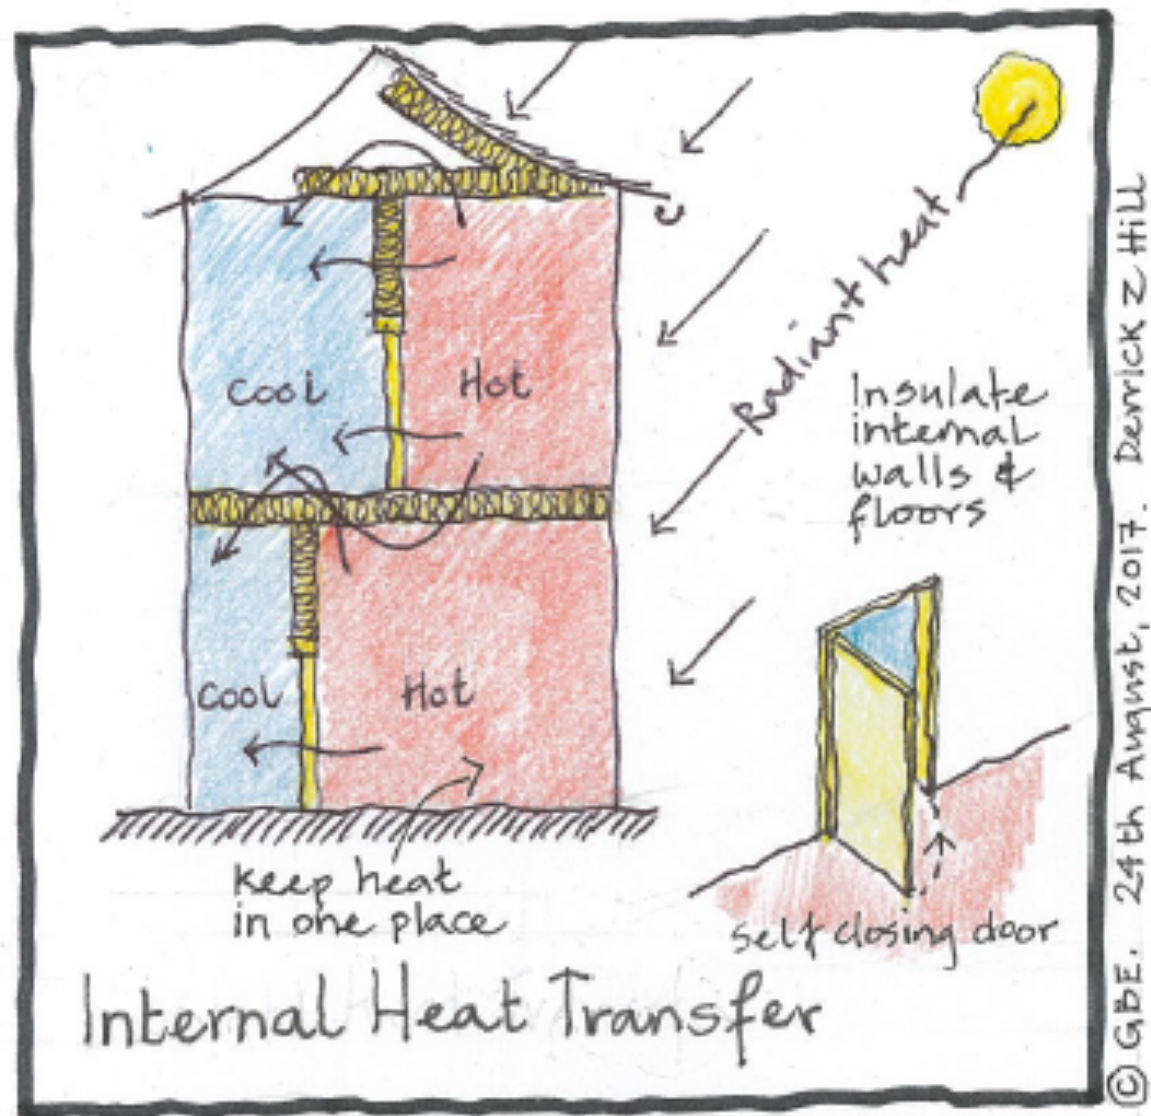 Radiant heat
Cool
Hot
Insulate
internal
walls &
floors
Cool
Hot
keep heat
in one place
self closing door
Internal Heat Transfer
© GBE. 24th August, 2017. Derrick Z Hill